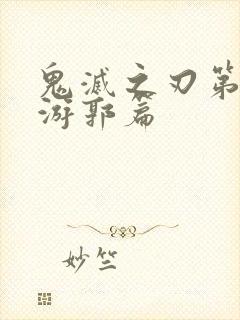 鬼滅之刃第
游郭篇
妙竺